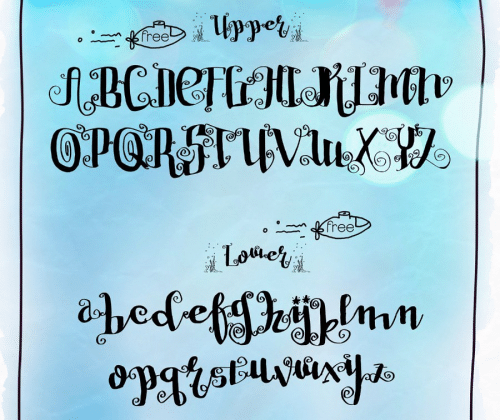 free Upper
ABCDEFGHIJKLMN
OPQRSTUVWXYZ
free
Lower
abcdefghijklmn
opqrstuvwxyz